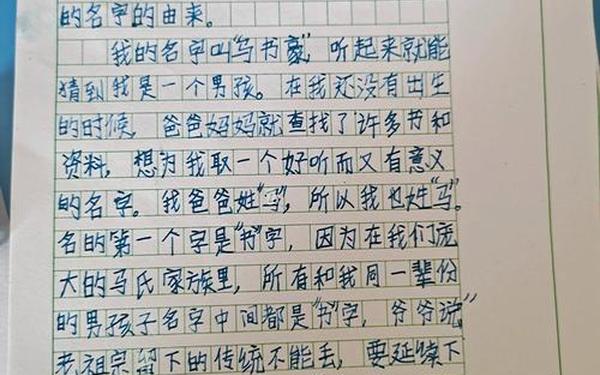 的名字的由来。
我的名字叫“马书豪”，听起来就能
猜到我是一个男孩。在我还没有出生
的时候，爸爸妈妈就查找了许多书和
资料，想为我取一个好听而又有意义
的名字。我爸爸姓“马”，所以我也姓“马”。
名的第一个字是“书”字，因为在我们庞
大的马氏家族里，所有和我同一辈份
的男孩子名字中间都是“书”字，爷爷说“
老祖宗留下的传统不能丢，要延续下